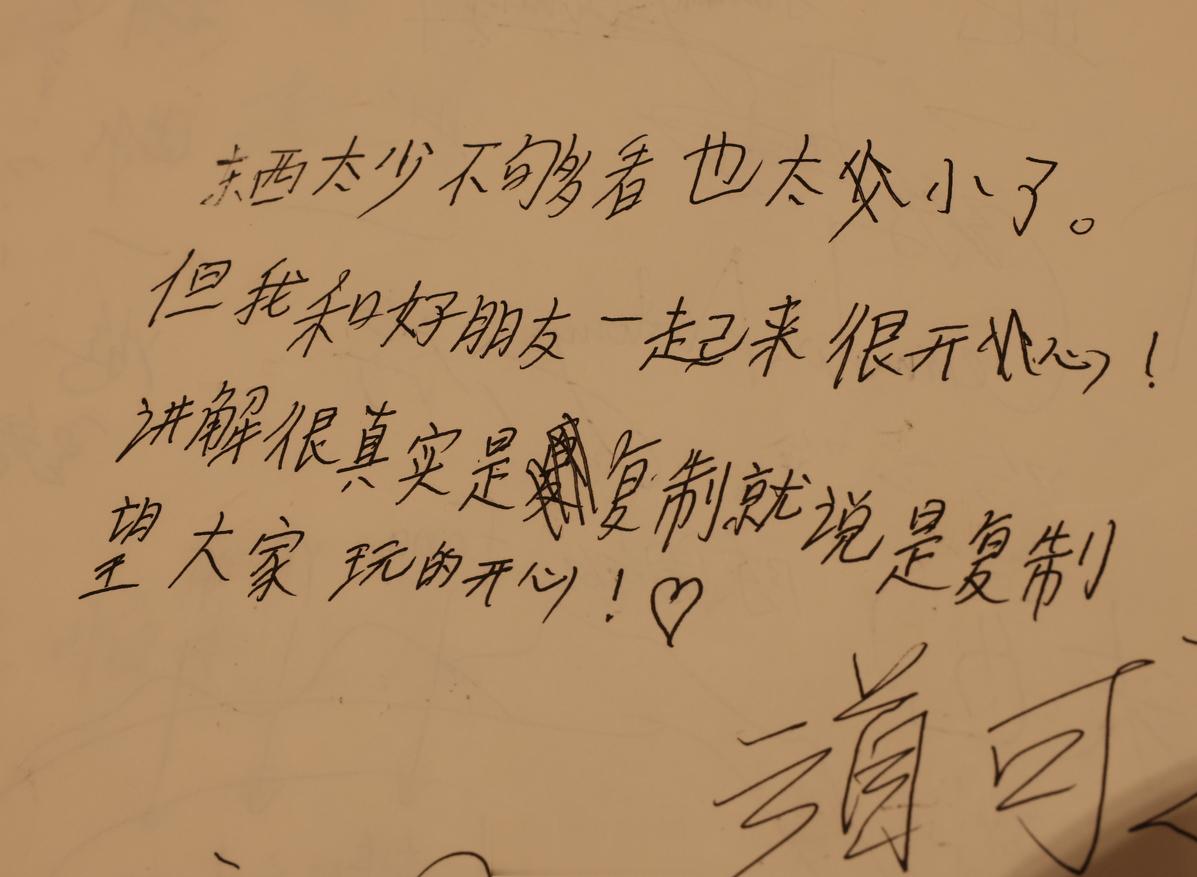 东西太少不够看也太小了。
但我和好朋友一起来很开心！
讲解很真实是复制就说是复制
望大家玩的开心！♡
道可